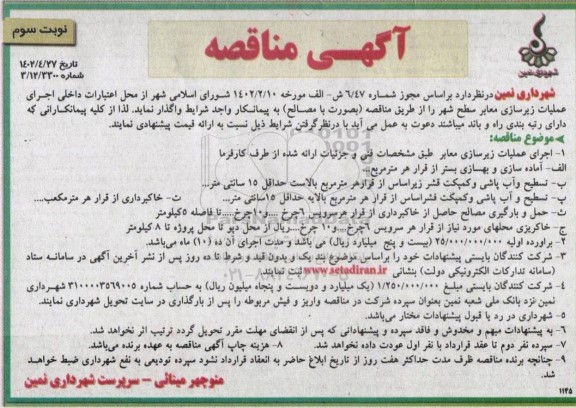 نوبت سوم
آگهی مناقصه
شهرداری نمین
تاریخ ۱۴۰۲/۴/۲۷
شماره ۳/۱۲/۳۳۰۰
شهرداری نمین درنظردارد براساس مجوز شماره ۶/۴۷ ش- الف مورخه ۱۴۰۲/۲/۱۰ شورای اسلامی شهر از محل اعتبارات داخلی اجرای
عملیات زیرسازی معابر سطح شهر را از طریق مناقصه (بصورت با مصالح) به پیمانکار واجد شرایط واگذار نماید. لذا از کلیه پیمانکارانی که
دارای رتبه بندی راه و باند میباشند دعوت به عمل می آید با درنظرگرفتن شرایط ذیل نسبت به ارائه قیمت پیشنهادی نمایند.
موضوع مناقصه:
۱- اجرای عملیات زیرسازی معابر طبق مشخصات فنی و جزئیات ارائه شده از طرف کارفرما
الف- آماده سازی و بهسازی بستر از قرار هر مترمربع....
ب- تسطیح و آب پاشی وکمپکت قشر زیراساس از قرارهر مترمربع بالاست حداقل ۱۵ سانتی متر...
پ- تسطیح و آب پاشی و کمپکت قشراساس از قرار هر مترمربع بالایه حداقل ۱۵سانتی متر... ت- خاکبرداری از قرار هر مترمکعب....
ث- حمل و بارگیری مصالح حاصل از خاکبرداری از قرار هرسرویس ۶چرخ ....و۱۰چرخ....تا فاصله ۵کیلومتر
ج- خاکریزی محلهای مورد نیاز از قرار هر سرویس ۶چرخ....و۱۰ چرخ....ریال از محل دپو تا محل پروژه تا ۸ کیلومتر
۲- برآورده اولیه ۲۵/۰۰۰/۰۰۰/۰۰۰ (بیست و پنج میلیارد ریال) می باشد و مدت اجرای آن ده (۱۰) ماه می‌باشد.
۳- شرکت کنندگان بایستی پیشنهادات خود را براساس موضوع بند یک و بدون قید و شرط تا ده روز پس از نشر آخرین آگهی در سامانه ستاد
(سامانه تدارکات الکترونیکی دولت) بنشانی www.setadiran.ir ثبت نمایند.
۴- شرکت کنندگان بایستی مبلغ ۱/۲۵۰/۰۰۰/۰۰۰ (یک میلیارد و دویست و پنجاه میلیون ریال) به حساب شماره ۳۱۰۰۰۰۳۵۶۹۰۰۵ شهرداری
نمین نزد بانک ملی شعبه نمین بعنوان سپرده شرکت در مناقصه واریز و فیش مربوطه را پس از بارگذاری در سایت تحویل شهرداری نمایند.
۵- شهرداری در رد یا قبول پیشنهادات مختار می‌باشد.
۶- به پیشنهادات مبهم و مخدوش و فاقد سپرده و پیشنهاداتی که پس از انقضای مهلت مقرر تحویل گردد ترتیب اثر نخواهد شد.
۷- سپرده نفر دوم تا عقد قرارداد با نفر اول عودت داده نخواهد شد. ۸- هزینه چاپ آگهی مناقصه به عهده برنده می‌باشد.
۹- چنانچه برنده مناقصه ظرف مدت حداکثر هفت روز از تاریخ ابلاغ حاضر به انعقاد قرارداد نشود سپرده تودیعی به نفع شهرداری ضبط خواهد
شد.
منوچهر مینائی – سرپرست شهرداری نمین
۱۱۴۵